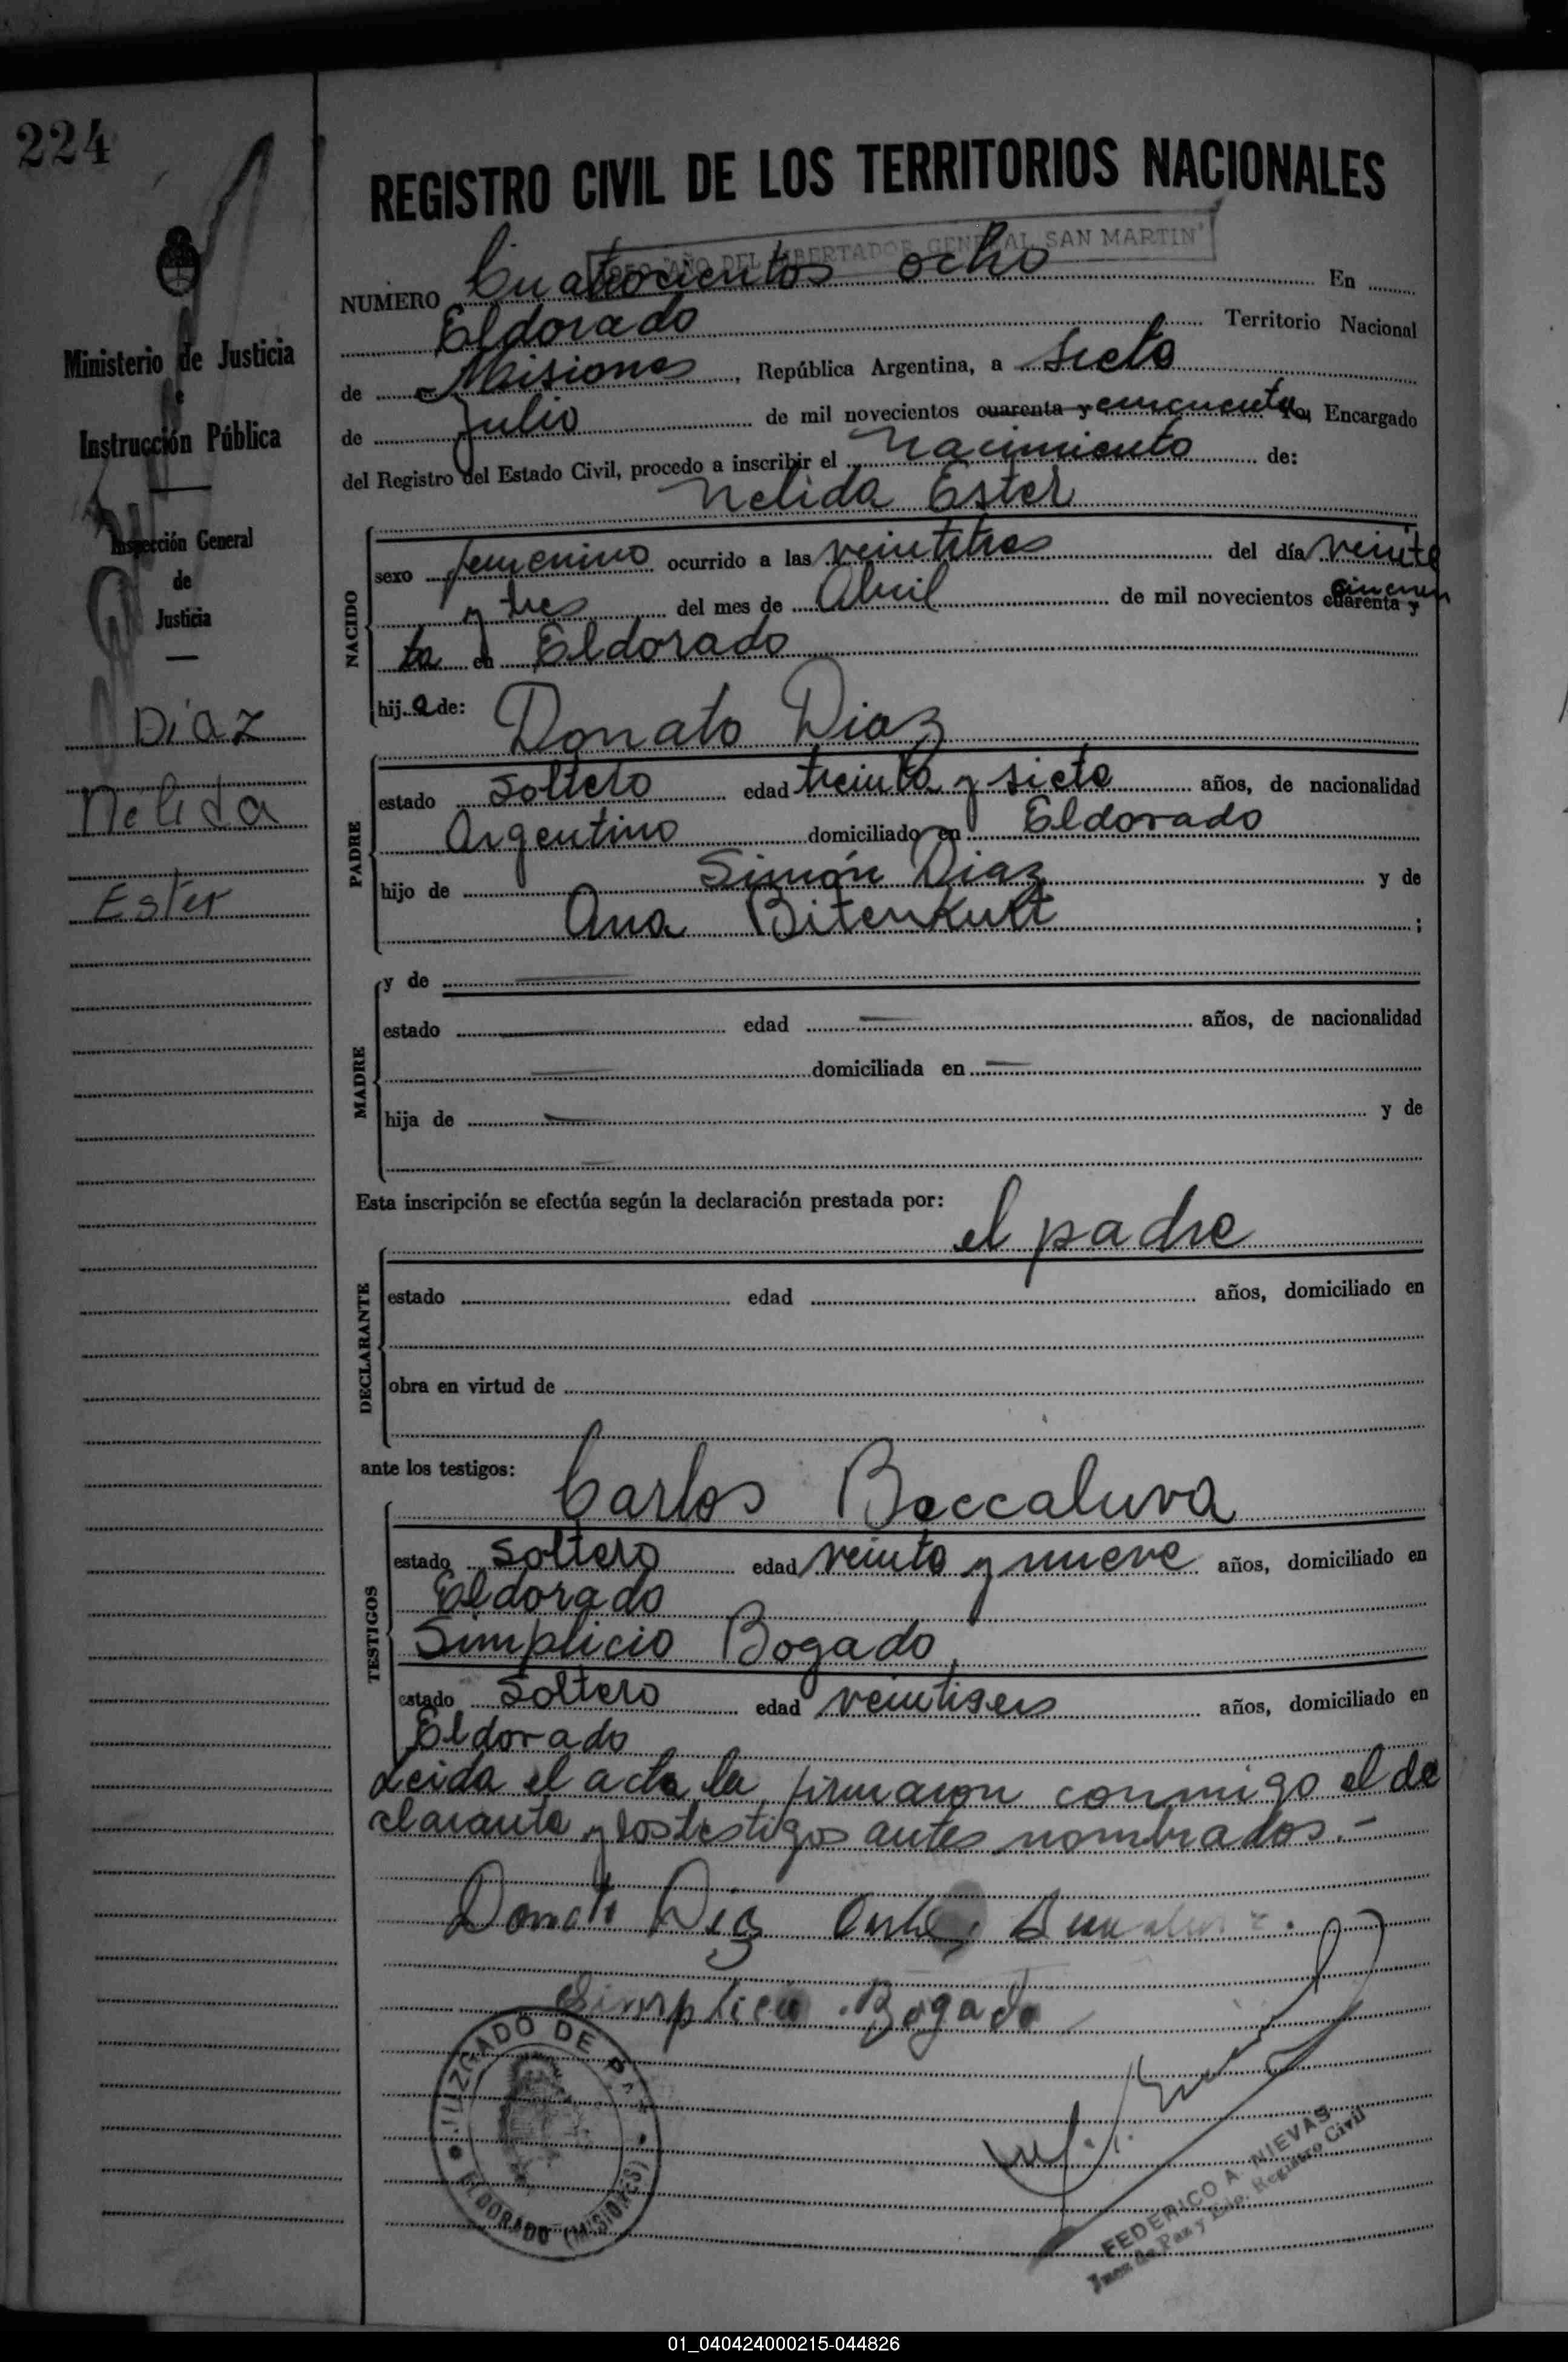 224
REGISTRO CIVIL DE LOS TERRITORIOS NACIONALES
1950 AÑO DEL LIBERTADOR GENERAL SAN MARTIN
NUMERO Cuatrocientos ocho En
Eldorado Territorio Nacional
de Misiones, República Argentina, a siete
de Julio de mil novecientos cuarenta y cincuenta yo, Encargado
del Registro del Estado Civil, procedo a inscribir el nacimiento de:
Nelida Ester
NACIDO
sexo femenino ocurrido a las veintitres del día veinte
y tres del mes de Abril de mil novecientos cuarenta y cincuen
ta en Eldorado
hija de:
Donato Diaz
PADRE
estado soltero edad treinta y siete años, de nacionalidad
Argentino domiciliado en Eldorado
hijo de Simón Diaz y de
Ana Bitenkurt;
MADRE
y de
estado edad años, de nacionalidad
domiciliada en
hija de y de
Esta inscripción se efectúa según la declaración prestada por:
el padre
DECLARANTE
estado edad años, domiciliado en
obra en virtud de
ante los testigos:
Carlos Boccaluva
TESTIGOS
estado soltero edad veinte y nueve años, domiciliado en
Eldorado
Simplicio Bogado
estado soltero edad veintiseis años, domiciliado en
Eldorado
Leida el acta la firmaron conmigo el de
clarante y los testigos antes nombrados.-
Donato Diaz Carlos
Simplicio Bogado
JUZGADO DE PAZ
ELDORADO (MISIONES)
FEDERICO A. NIEVAS
Juez de Paz y Edo. Registro Civil
Ministerio de Justicia
Instrucción Pública
Inspección General
de
Justicia
Diaz
Nelida
Ester
01_040424000215-044826